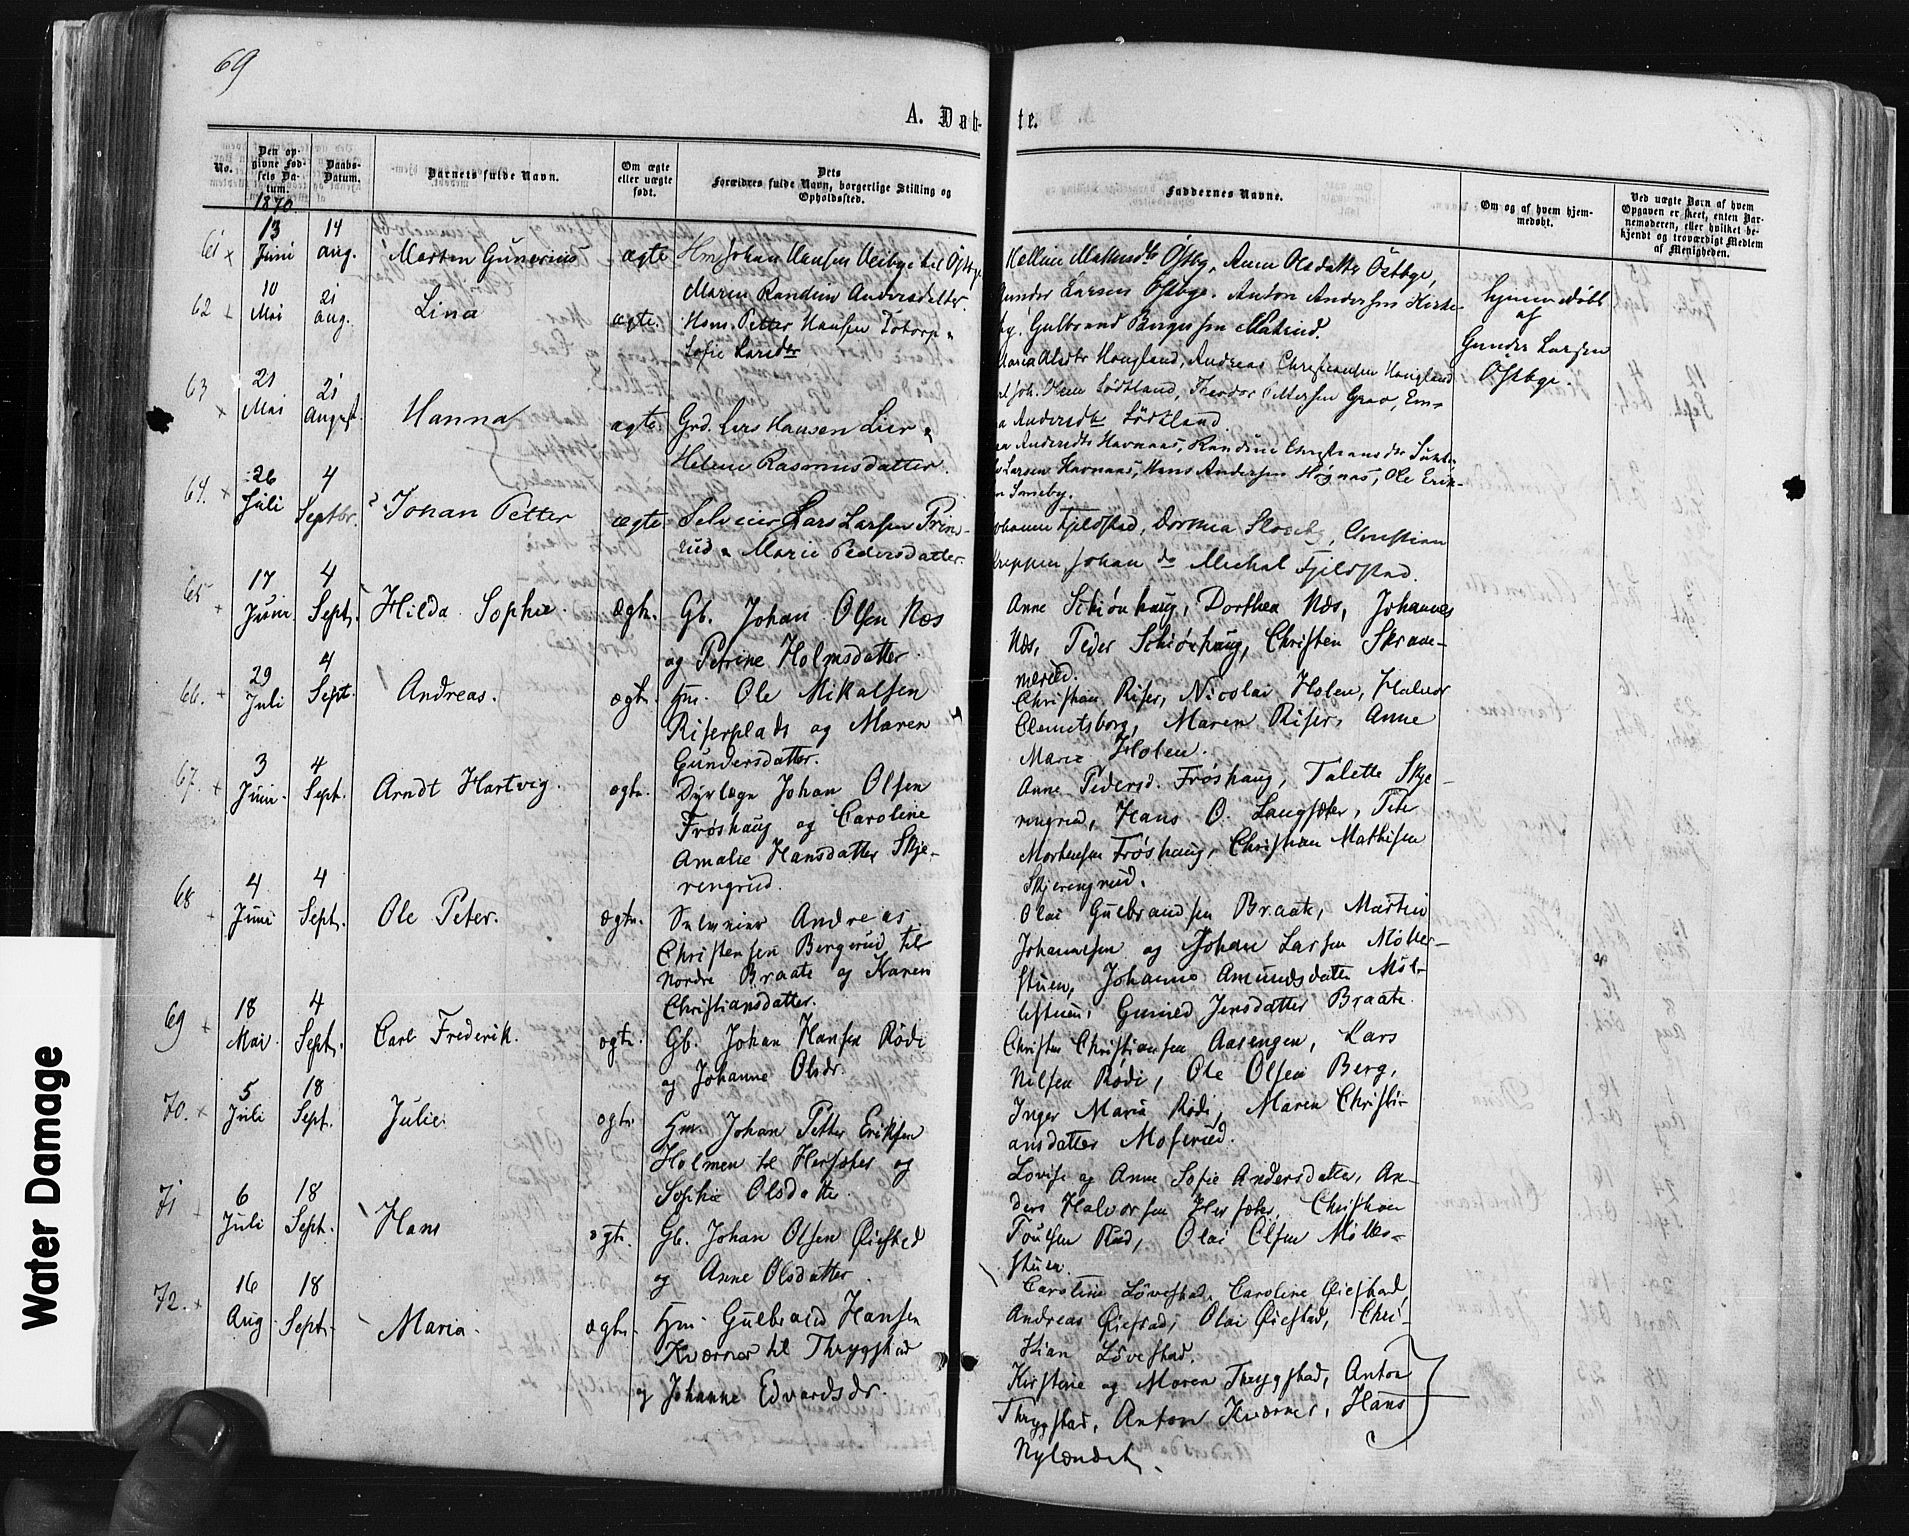 69
A. Døb-
te.
No.
Den op-
givne Fød-
sels Da-
tum.
Daabs-
Datum.
Barnets fulde Navn.
Om ægte
eller uægte
født.
Dets
Forældres fulde Navn, borgerlige Stilling og
Opholdssted.
Faddernes Navne.
Om og af hvem hjem-
medøbt.
Ved uægte Børn af hvem
Opgaven er skeet, enten Bar-
nemoderen, eller hvilket be-
kjendt og troværdigt Medlem
af Menigheden.
1870.
61 13 Juni 14 Aug. Morten Gunerius ægte Hm Johan Hansen til Østbye
Maren Randine Andersdatter.
Østby, Anne Olsdatter Østbye,
Gunder Larsen Østbye, Anton Andersen Kirke-
by, Gulbrand
hjemmedøbt
af
Gunder Larsen
Østbye.
62 10 Mai 21 Aug. Lina ægte. Hans Petter Hansen
Sofie Larsdtr
Maria Hougland, Andreas Christiansen Hougland
Lødtland, Theodor Pettersen Grav, Em-
Andersdtr Lødtland.
63 21 Mai 21 August. Hanna ægte. Grd. Lars Hansen Lier &
Helene Rasmusdatter.
Andersdtr Havnaas, Randine Christiansdtr
Larsen Havnaas, Hans Andersen Høgnas, Ole Erik-
64. 26 Juli 4 Septbr. Johan Petter ægte Selveier Lars Larsen Prins-
rud & Marie Pedersdatter.
Johanne Fjeldstad, Dorthea Christian
Kreppen Johan do Michal Fjeldstad.
65 17 Juni 4 Sept. Hilda Sophie. ægte. Gb. Johan Olsen Næs
og Petrine Holmsdatter.
Anne Schiønhaug, Dorthea Næs, Johannes
Næs, Peder Schiønhaug, Christen Skram-
merud.
66. 29 Juli 4 Sept. Andreas. ægte. Hm. Ole Mikalsen
Riserplads og Maren
Gundersdatter.
Christian Riser, Nicolai Holen, Halvor
Clemetsborg, Maren Riser, Anne
Marie Holen.
67. 3 Juni. 4 Sept. Arndt Hartvig. ægte. Dyrlæge Johan Olsen
Frøshaug og Caroline
Amalie Hansdatter Skje-
rengrud.
Anne Pedersd. Frøshaug, Talette Skje-
rengrud, Hans O. Langsæter, Peter
Mortensen Frøshaug, Christian Mathisen
Skjerengrud.
68 4 Juni 4 Sept. Ole Peter. ægte. Selveier Andreas
Christensen Bergerud til
Nordre Braate og Karen
Christiansdatter.
Olai Gulbrandsen Braate, Martin
Johannesen og Johan Larsen Møller-
stuen, Johanne Amundsdatter Møl-
lestuen, Gunild Jensdatter Braate.
69 18 Mai. 4 Sept. Carl Frederik. ægte. Gb. Johan Hansen Rødi
og Johanne Olsdr.
Christen Christiansen Aasengen, Lars
Nilsen Rødi, Ole Olsen Berg,
Inger Maria Rødi, Maren Christi-
ansdatter Moserud.
70. 5 Juli 18 Sept. Julie. ægte. Hm. Johan Petter Eriksen
Holmen til Hersæter og
Sophie Olsdatter.
Lovise og Anne Sofie Andersdatter, An-
ders Halvorsen Hersæter, Christian
Poulsen Rud, Olai Olsen Mølles-
stuen.
71 6 Juli 18 Sept. Hans ægte. Gb. Johan Olsen Øiestad
og Anne Olsdatter.
Caroline Løvestad, Caroline Øiestad,
Andreas Øiestad, Olai Øiestad, Chri-
stian Løvestad.
72. 16 Aug 18 Sept. Maria. ægte. Hm. Gulbrand Hansen
Kværner til Thrygstad
og Johanne Edvardsdr.
Kirstine og Maren Thrygstad, Anton
Thrygstad, Anton Kværner, Hans
Nylændet.
Water Damage